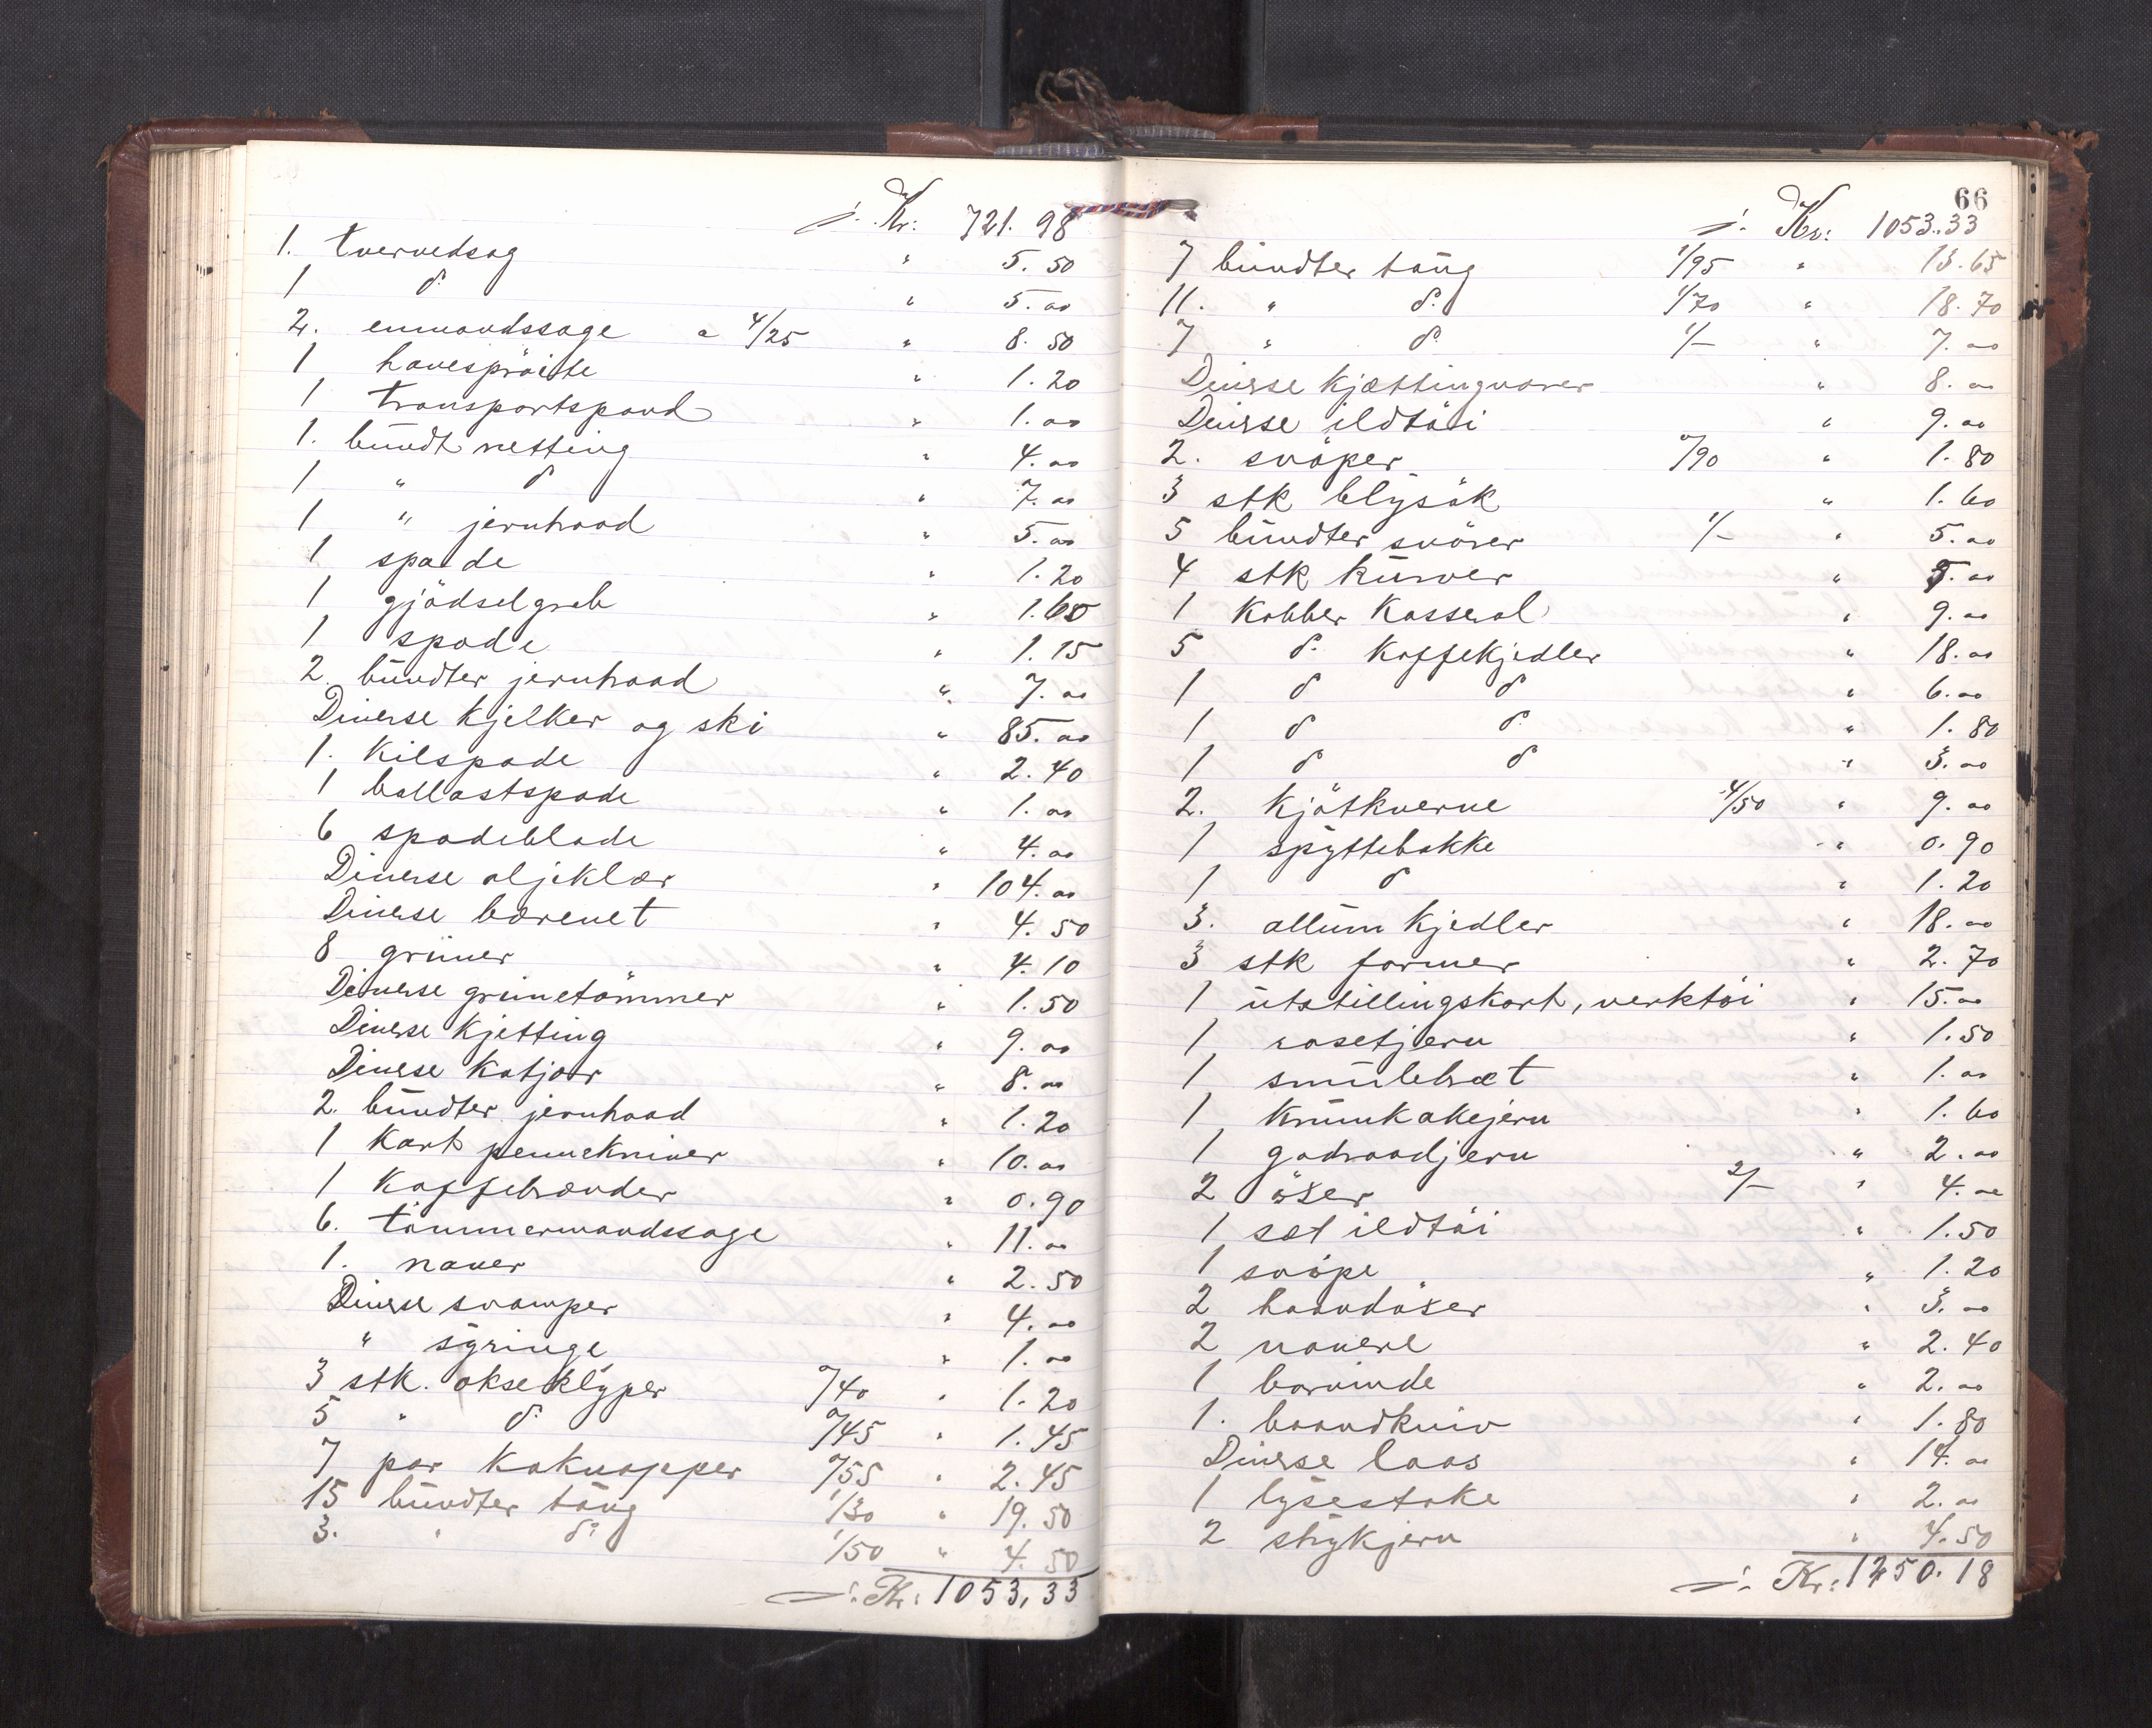 ∴ Kr: 721.98
1. tvervedsag " 5.50
1 do " 5.00
2. enmandssage a 4/25 " 8.50
1 havespröite " 1.20
1 transportspand " 1.00
1. bundt netting " 4.00
1 " do " 7.00
1 " jerntraad " 5.00
1 spade " 1.20
1 gjödselgreb " 1.60
1 spade " 1.15
2. bundter jerntraad " 7.00
Diverse kjelker og ski " 85.00
1. Kilspade " 2.40
1 ballastspade " 1.00
6 spadeblade " 4.00
Diverse oljeklær " 104.00
Diverse bærenet " 4.50
8 grimer " 4.10
Diverse grimetömmer " 1.50
Diverse Kjetting " 9.00
Diverse Katjor " 8.00
2. bundter jerntraad " 1.20
1 Kart pennekniver " 10.00
1 Kaffebrænder " 0.90
6. tömmermandssage " 11.00
1. naver " 2.50
Diverse svamper " 4.00
" syringe " 1.00
3 stk. okseklyper 0/40 " 1.20
5 " do 0/45 " 1.45
7 par Koknapper 0/55 " 2.45
15 bundter taug 1/30 " 19.50
3. " do 1/50 " 4.50
∴ Kr: 1053,33
66
∴ Kr: 1053.33
7 bundter taug 1/95 " 13.65
11. " do 1/70 " 18.70
7 " do 1/- " 7.00
Diverse Kjættingvarer " 8.00
Diverse ildtöi " 9.00
2. svöper 0/90 " 1.80
3 stk blysök " 1.60
5 bundter snörer 1/- " 5.00
4 stk kurver " 5.00
1 Kobber Kasserol " 9.00
5 do Kaffekjedler " 18.00
1 do do " 6.00
1 do do " 1.80
1 do do " 3.00
2. Kjötkverne 4/50 " 9.00
1 spyttebakke " 0.90
1 do " 1.20
3. allum Kjedler " 18.00
3 stk former " 2.70
1 utstillingskart, verktöi " 15.00
1 rosetjern " 1.50
1 smultbræt " 1.00
1 Krumkakejern " 1.60
1 godraadjern " 2.00
2 öxer 2/- " 4.00
1 sæt ildtöi " 1.50
1 svöpe " 1.20
2 haandöxer " 3.00
2 navere " 2.40
1 borvinde " 2.00
1. baandkniv " 1.80
Diverse laas " 14.00
1 lysestake " 2.00
2 strykjern " 4.50
∴ Kr: 1250.18